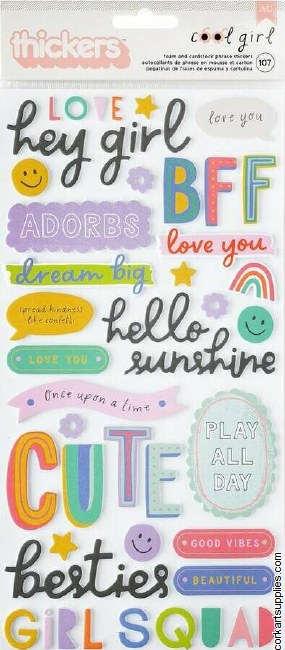 thickers
cool girl
AC
foam and cardstock phrase stickers
autocollants de phrase en mousse et carton
pegatinas de frases de espuma y cartulina
107
LOVE
love you
hey girl
BFF
ADORBS
love you
dream big
spread kindness
like confetti
hello
sunshine
LOVE YOU
Once upon a time
PLAY
ALL
DAY
CUTE
GOOD VIBES
besties
BEAUTIFUL
GIRL SQUAD
corkartsupplies.com